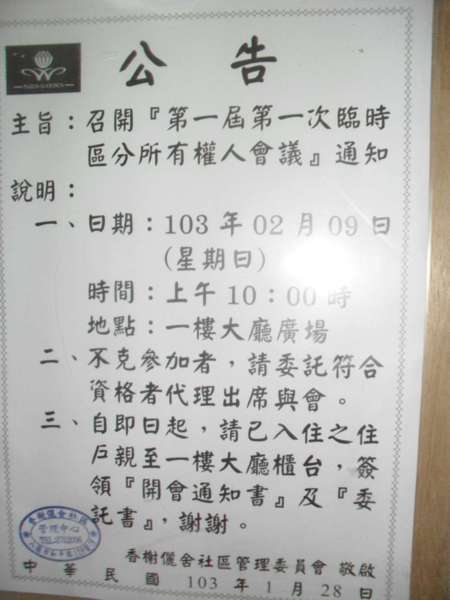 公告
主旨：召開『第一屆第一次臨時
區分所有權人會議』通知
說明：
一、日期：103年02月09日
(星期日)
時間：上午10：00時
地點：一樓大廳廣場
二、不克參加者，請委託符合
資格者代理出席與會。
三、自即日起，請已入住之住
戶親至一樓大廳櫃台，簽
領『開會通知書』及『委
託書』，謝謝。
香榭儷舍社區
管理中心
香榭儷舍社區管理委員會 敬啟
中華民國103年1月28日